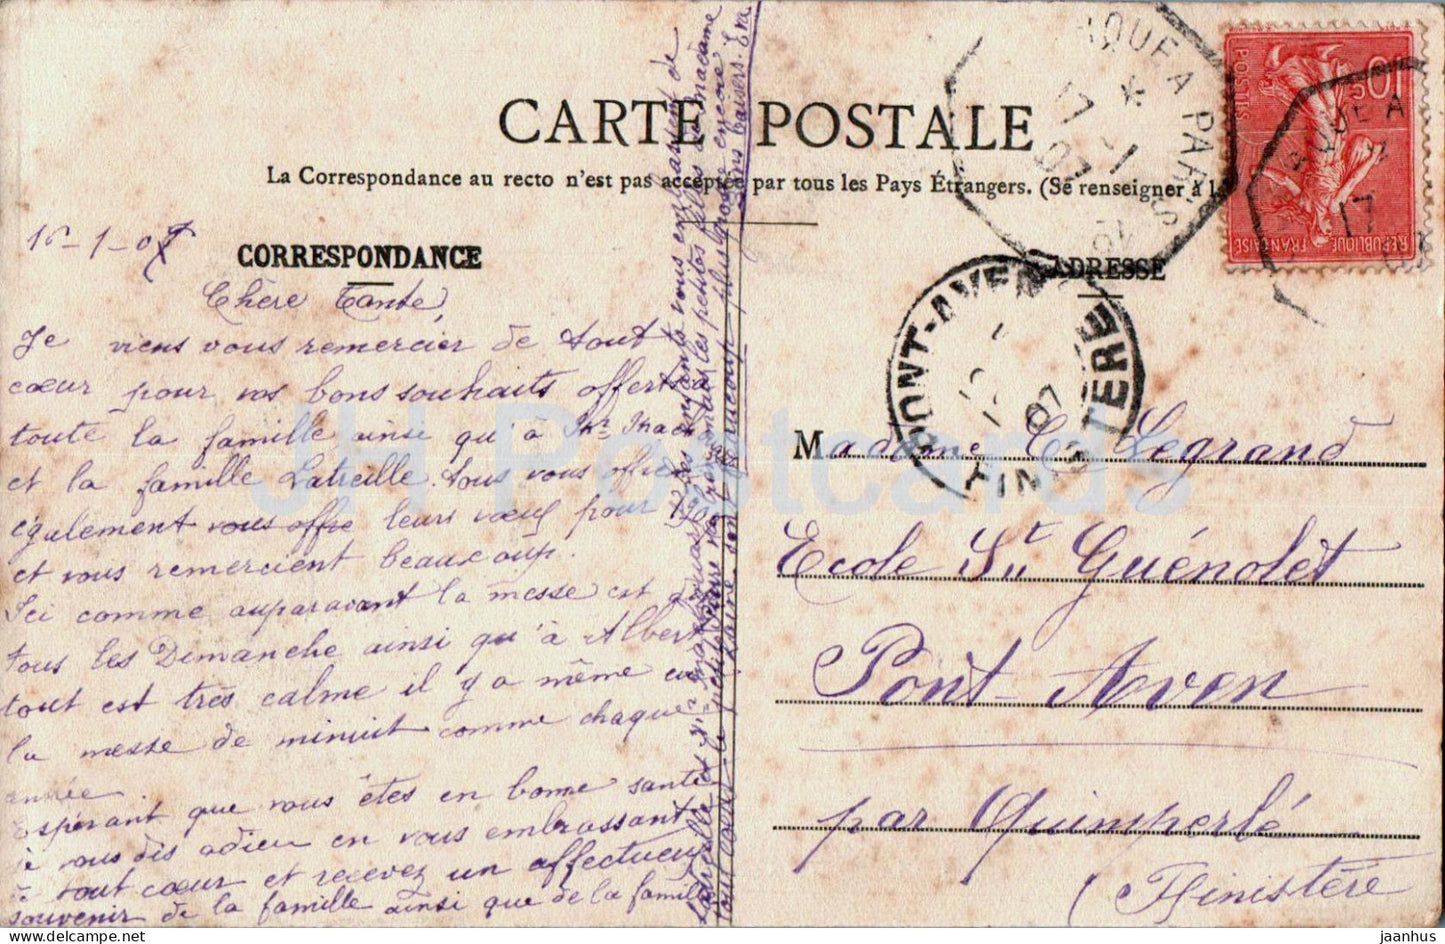 CARTE POSTALE
La Correspondance au recto n'est pas acceptée par tous les Pays Étrangers. (Se renseigner à l
CORRESPONDANCE
ADRESSE
16-1-07
Chère Tante,
Je viens vous remercier de tout
cœur pour vos bons souhaits offerts à
toute la famille ainsi qu'à
et la famille Latreille tous vous offre
également vous offre leurs vœux pour 190
et vous remercient beaucoup.
Ici comme auparavant la messe est
tous les Dimanche ainsi qu'à Albert
tout est très calme il y a même eu
la messe de minuit comme chaque
année
Espérant que vous êtes en bonne santé
je vous dis adieu en vous embrassant
à tout cœur et recevez un affectueux
souvenir de la famille ainsi que de la famille
Latreille et
enfants vous embrassent de
tout cœur
les petites filles à madame
beaucoup plus grosse encore
baisers. Eva
Madame C. Legrand
Ecole St Guénolèt
Pont-Aven
par Quimperlé
(Finistère
PONT-AVEN
FINISTÈRE
07
QUE A PARIS
17 -1
07
REPUBLIQUE FRANÇAISE
POSTES
10
17
JH Postcards
jaanhus